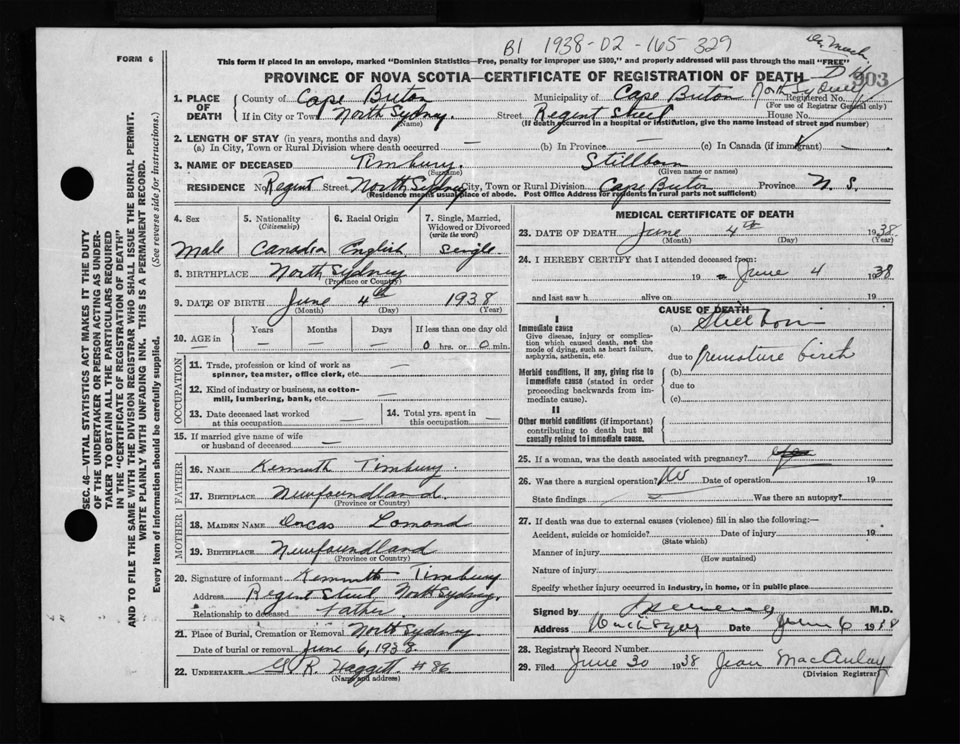 B1 1938-02-165-329
FORM 6
This form if placed in an envelope, marked "Dominion Statistics—Free, penalty for improper use $300," and properly addressed will pass through the mail "FREE"
PROVINCE OF NOVA SCOTIA—CERTIFICATE OF REGISTRATION OF DEATH
903
1. PLACE OF DEATH
County of Cape Breton
Municipality of Cape Breton
North Sydney
Registered No.
(For use of Registrar General only)
If in City or Town North Sydney. Street Regent Street House No.
(Name)
(If death occurred in a hospital or institution, give the name instead of street and number)
2. LENGTH OF STAY (in years, months and days)
(a) In City, Town or Rural Division where death occurred — (b) In Province — (c) In Canada (if immigrant) —
3. NAME OF DECEASED Timbury. Stillborn
(Surname) (Given name or names)
RESIDENCE No. Regent Street North Sydney City, Town or Rural Division Cape Breton Province N. S.
(Residence means usual place of abode. Post Office Address for residents in rural parts not sufficient)
4. Sex
Male
5. Nationality
(Citizenship)
Canadian
6. Racial Origin
English
7. Single, Married, Widowed or Divorced
(write the word)
Single
8. BIRTHPLACE North Sydney
(Province or Country)
9. DATE OF BIRTH June 4th 1938
(Month) (Day) (Year)
10. AGE in
—
Years
—
Months
—
Days
—
If less than one day old
0 hrs. or 0 min.
OCCUPATION
11. Trade, profession or kind of work as spinner, teamster, office clerk, etc. —
12. Kind of industry or business, as cotton-mill, lumbering, bank, etc. —
13. Date deceased last worked at this occupation —
14. Total yrs. spent in this occupation —
15. If married give name of wife or husband of deceased —
FATHER
16. NAME Kenneth Timbury.
17. BIRTHPLACE Newfoundland.
(Province or Country)
MOTHER
18. MAIDEN NAME Lomond
19. BIRTHPLACE Newfoundland
(Province or Country)
20. Signature of informant Kenneth Timbury
Address Regent Street, North Sydney,
Relationship to deceased Father.
21. Place of Burial, Cremation or Removal North Sydney
Date of burial or removal June 6, 1938.
22. UNDERTAKER G. R. Haggett #86
(Name and address)
MEDICAL CERTIFICATE OF DEATH
23. DATE OF DEATH June 4th 1938
(Month) (Day) (Year)
24. I HEREBY CERTIFY that I attended deceased from:
19 June 4 1938
and last saw h alive on 19
CAUSE OF DEATH
I
Immediate cause
Give disease, injury or complication which caused death, not the mode of dying, such as heart failure, asphyxia, asthenia, etc.
(a) Still born
due to premature birth
Morbid conditions, if any, giving rise to immediate cause (stated in order proceeding backwards from immediate cause).
(b)
due to
(c)
II
Other morbid conditions (if important) contributing to death but not causally related to immediate cause.
25. If a woman, was the death associated with pregnancy?
26. Was there a surgical operation? No Date of operation 19
State findings — Was there an autopsy?
27. If death was due to external causes (violence) fill in also the following:—
Accident, suicide or homicide? Date of injury 19
(State which)
Manner of injury
(How sustained)
Nature of injury
Specify whether injury occurred in industry, in home, or in public place
Signed by M.D.
Address Date June 6 1938
28. Registrar's Record Number
29. Filed June 30 1938 Jean MacAulay
(Division Registrar)
SEC. 46—VITAL STATISTICS ACT MAKES IT THE DUTY
OF THE UNDERTAKER OR PERSON ACTING AS UNDER-
TAKER TO OBTAIN ALL THE PARTICULARS REQUIRED
IN THE "CERTIFICATE OF REGISTRATION OF DEATH"
AND TO FILE THE SAME WITH THE DIVISION REGISTRAR WHO SHALL ISSUE THE BURIAL PERMIT.
WRITE PLAINLY WITH UNFADING INK. THIS IS A PERMANENT RECORD.
Every item of information should be carefully supplied. (See reverse side for instructions.)